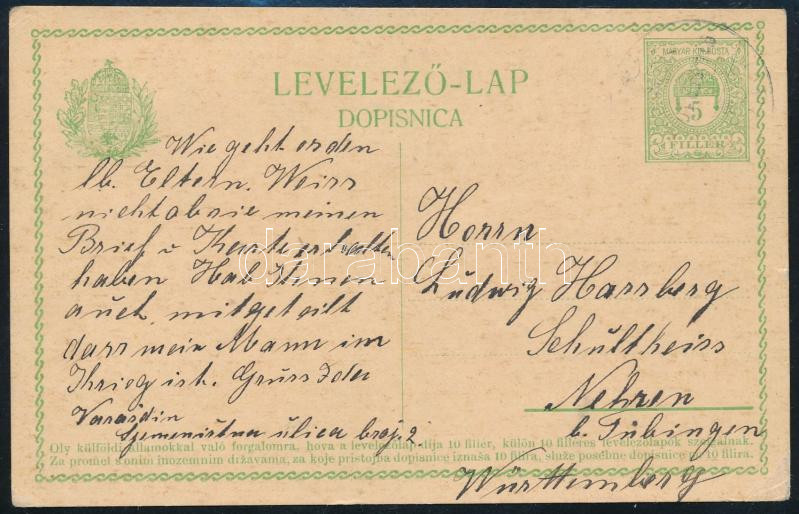 MAGYAR KIR. POSTA
5
FILLÉR
LEVELEZŐ-LAP
DOPISNICA
Wie geht es den
lb. Eltern. Weiss
nicht ob sie meinen
Brief u Karte erhalten
haben Hab Ihnen
auch mitgeteilt
dass mein Mann im
Krieg ist. Gruss Ida
Varasdin
ulica broj. 2.
Herrn
Ludwig Harrberg
Schultheiss
Nehren
b. Tübingen
Württemberg
Oly külföldi államokkal való forgalomra, hova a levelezőlap díja 10 fillér, külön 10 filléres levelezőlapok szolgálnak.
Za promet s onim inozemnim državama, za koje pristojba dopisnice iznaša 10 filira, služe posebne dopisnice od 10 filira.
darabanth